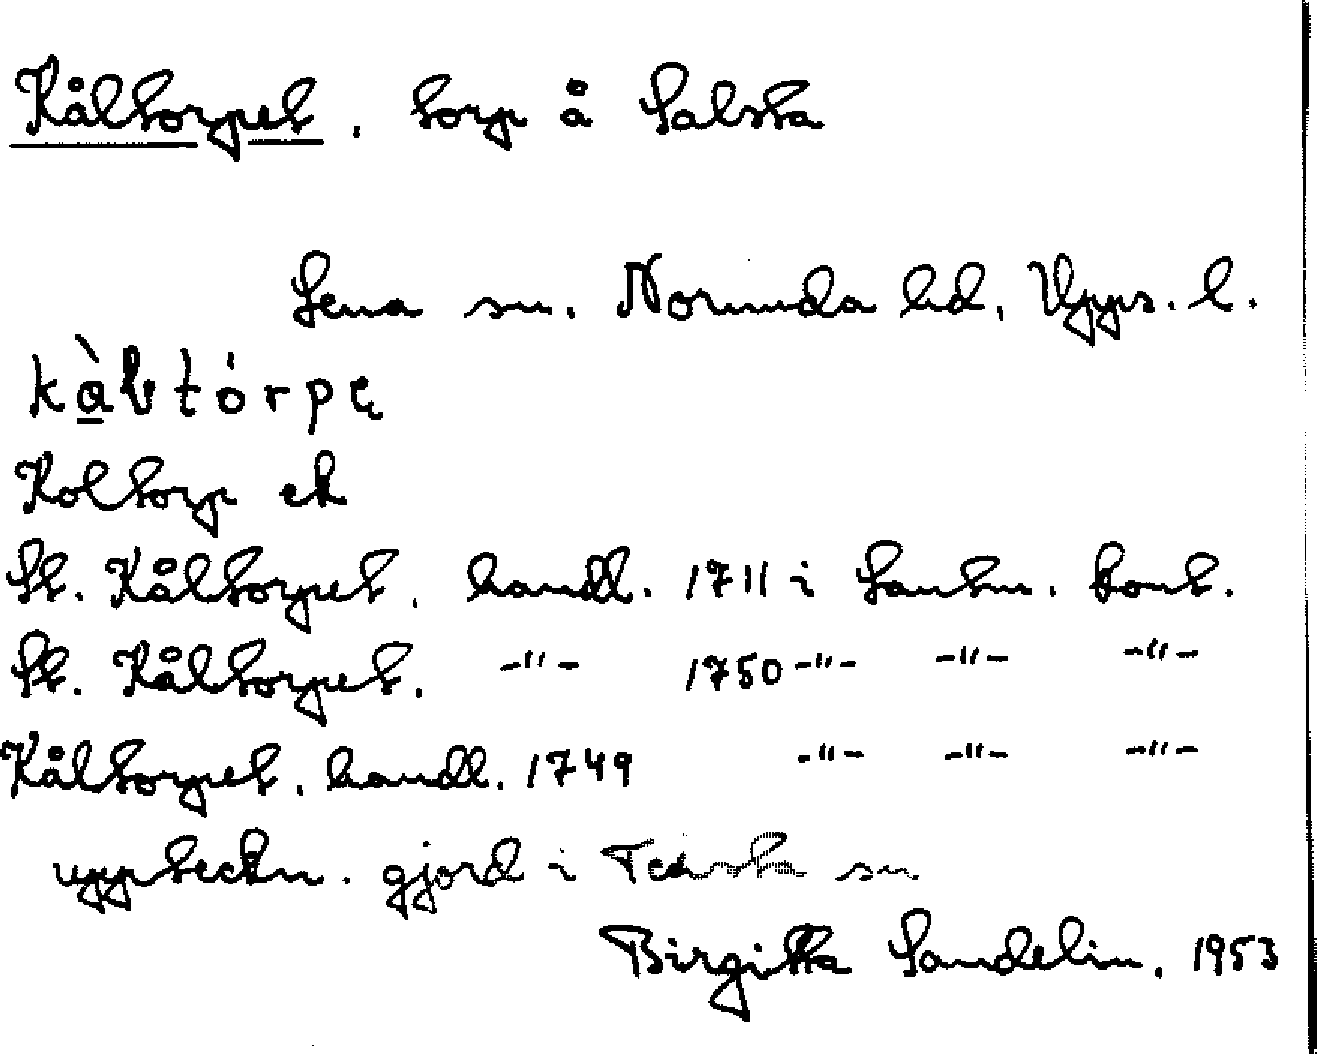 Kåltorpet, torp å Salsta
Lena sn. Norunda hd, Upps. l.
kàltórpe
Koltorp ek
St. Kåltorpet, handl. 1711 i Lantm. kont.
St. Kåltorpet, -"- 1750 -"- -"- -"-
Kåltorpet, handl. 1749 -"- -"- -"-
uppteckn. gjord i Tensta sn
Birgitta Sandelin, 1953